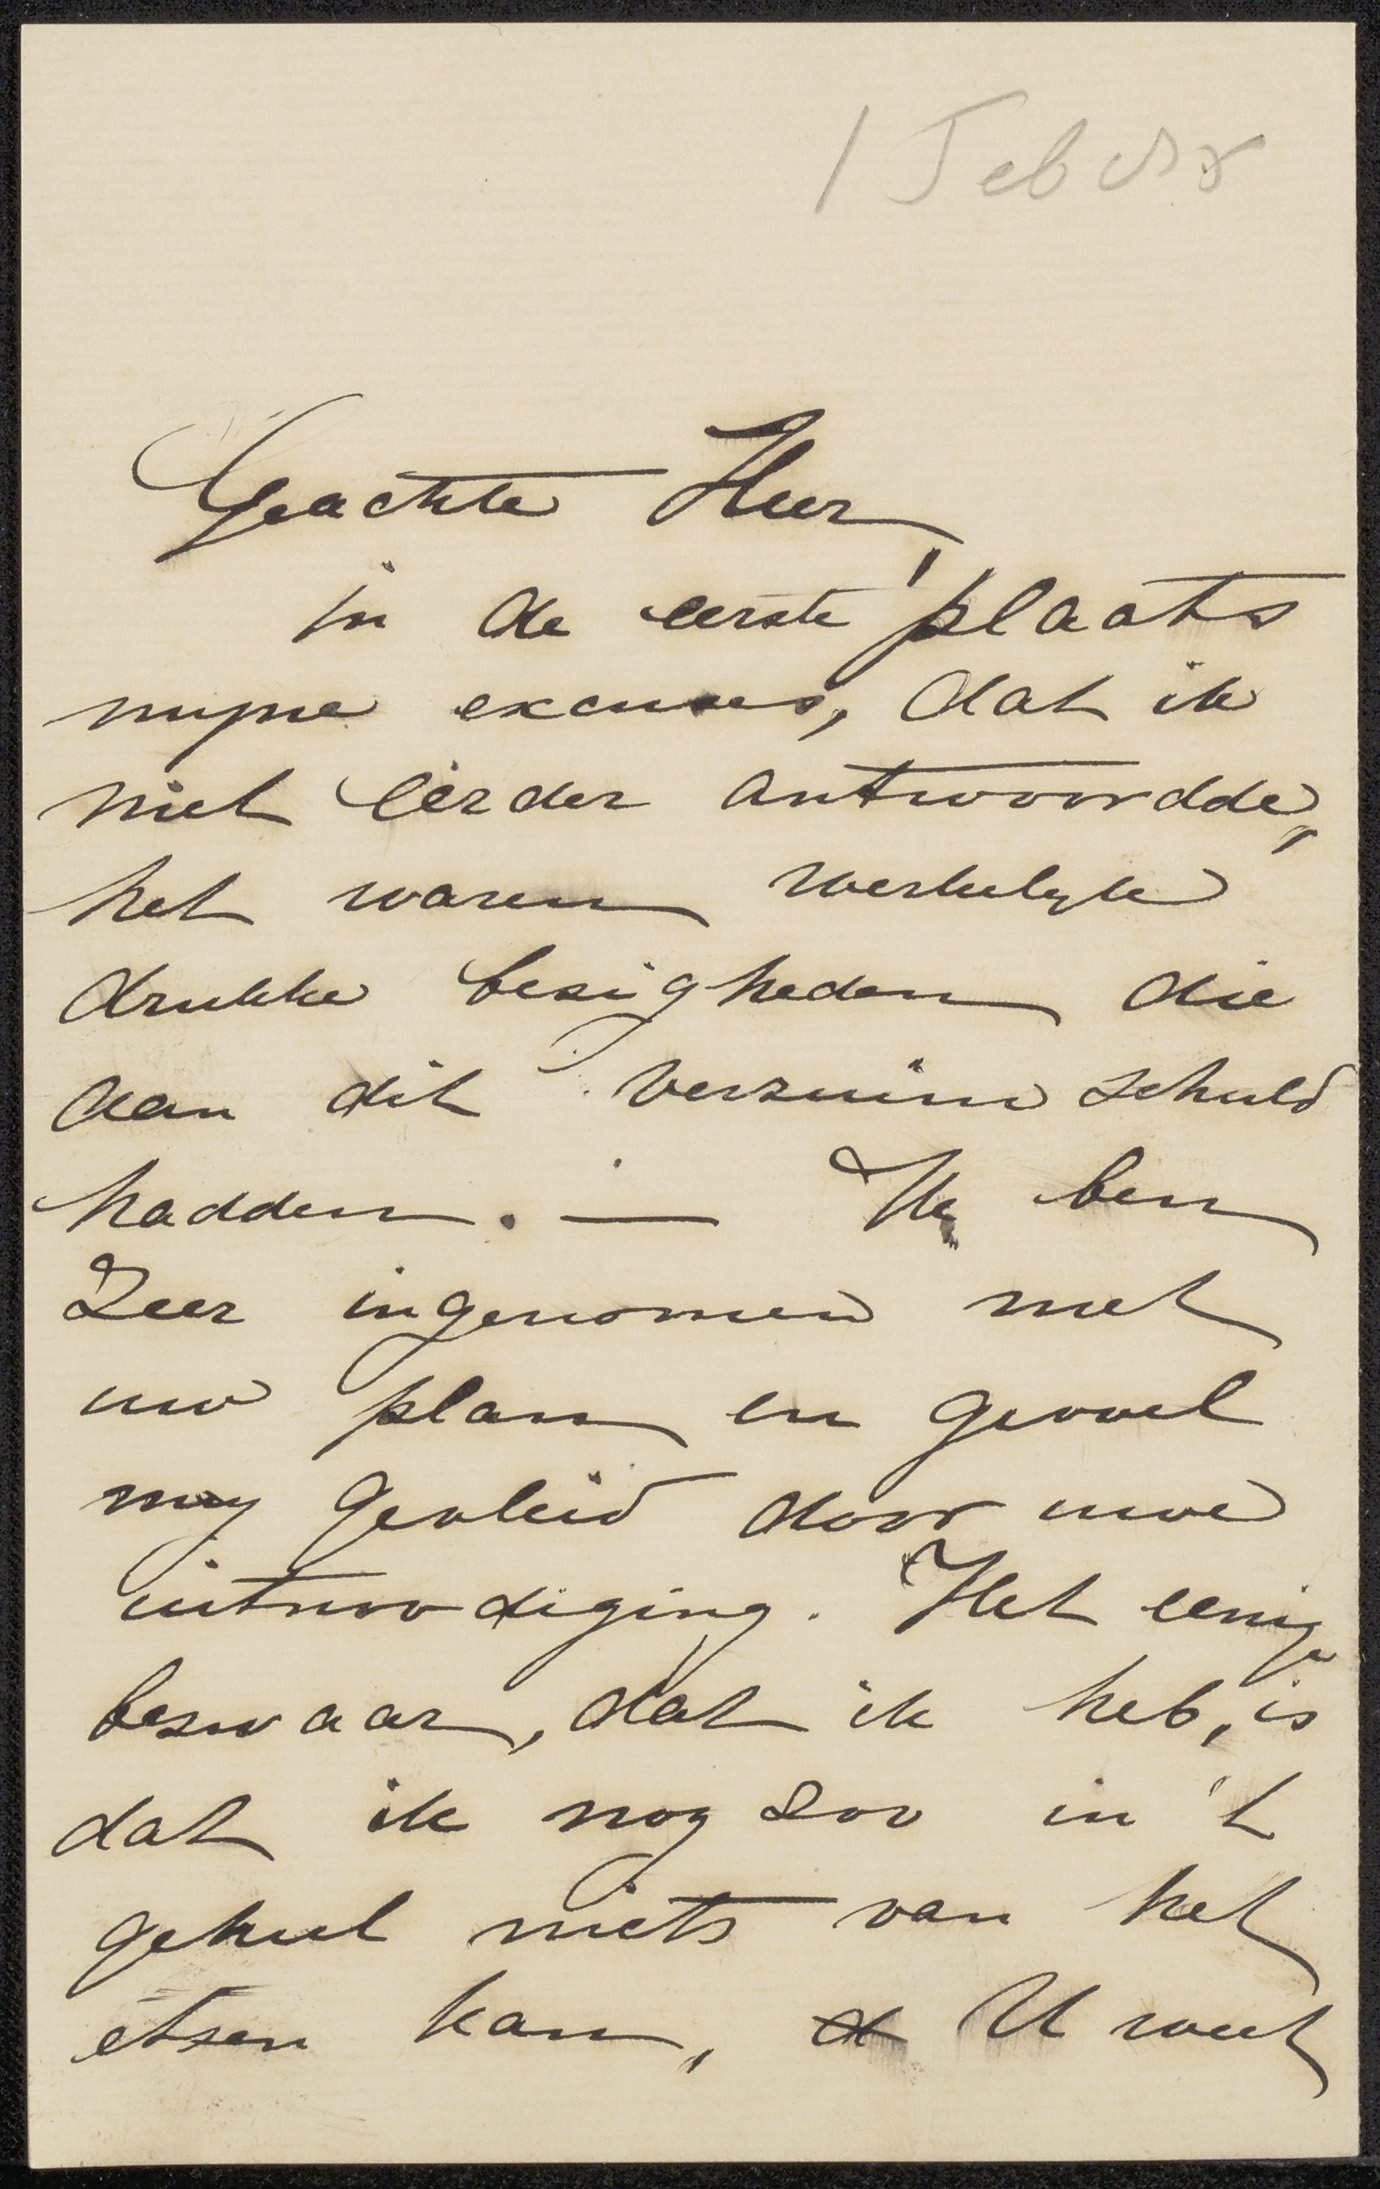 1 Feb
Geachte Heer,
in de eerste plaats
mijne excuses, dat ik
niet eerder antwoordde,
het waren werkelijke
drukke bezigheden die
aan dit verzuim schuld
hadden. — Ik ben
Zeer ingenomen met
uw plan en gevoel
mij gevleid door uwe
uitnoodiging. Het eenige
bezwaar, dat ik heb, is
dat ik nog zoo in 't
geheel niets van het
etsen kan, U weet